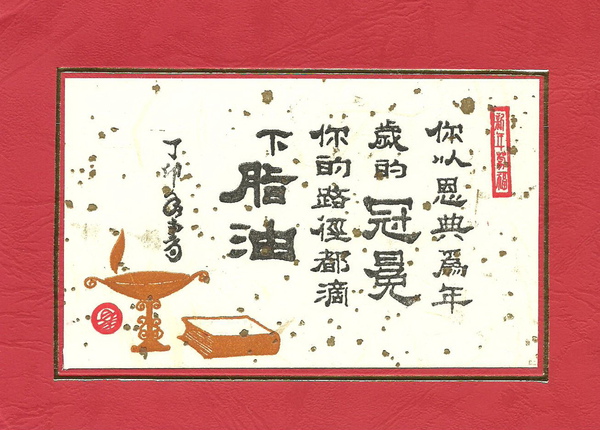 新年蒙福
你以恩典爲年
歲的冠冕
你的路徑都滴
下脂油
丁卯